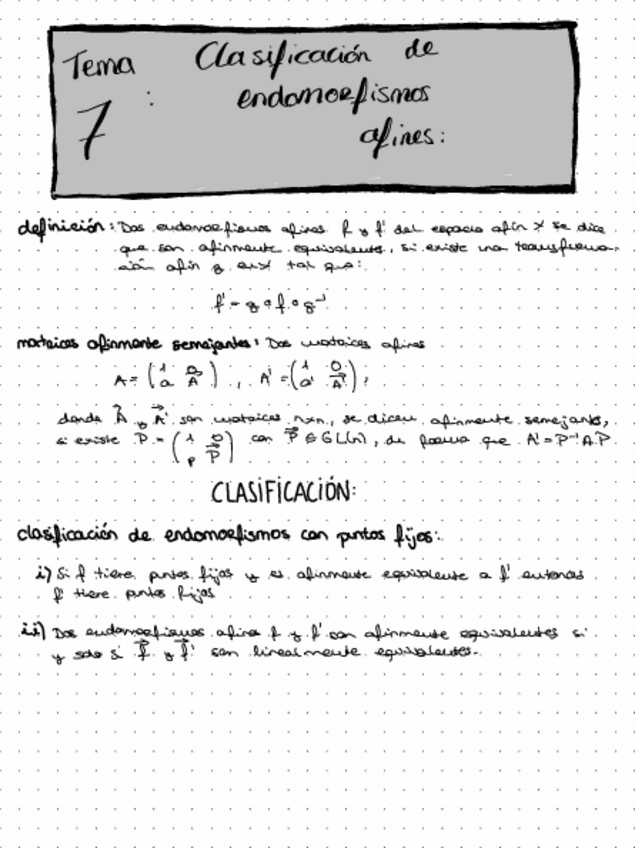 Tema 7: Clasificación de
endomorfismos
afines:
definición: Dos endomorfismos afines f y f' del espacio afín X se dice
que son afinmente equivalentes, si existe una transforma-
ción afín g en X tal que:
f' = g ∘ f ∘ g⁻¹
matrices afinmente semejantes: Dos matrices afines
A = (1 0 / a A⃗), A' = (1 0 / a' A⃗'),
donde A⃗ y A⃗' son matrices nxn, se dicen afinmente semejants,
si existe P = (1 0 / p P⃗) con P⃗ ∈ GL(n), de forma que A' = P⁻¹AP
CLASIFICACIÓN:
clasificación de endomorfismos con puntos fijos:
i) Si f tiene puntos fijos y es afinmente equivalente a f' entonces
f' tiene puntos fijos
ii) Dos endomorfismos afins f y f' son afinmente equivalentes si
y solo si f⃗ y f⃗' son linealmente equivalentes.